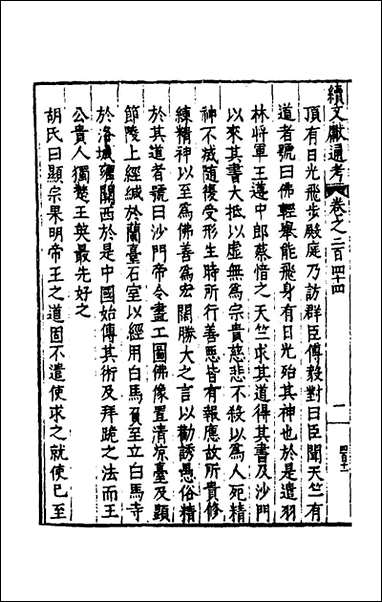 續文獻通考 卷之二百四十四 一
頂有日光飛步殿庭乃訪群臣傅毅對曰臣聞天竺有
道者號曰佛輕舉能飛身有日光殆其神也於是遣羽
林將軍王遵中郎蔡愔之天竺求其道得其書及沙門
以來其書大抵以虛無爲宗貴慈悲不殺以爲人死精
神不滅隨復受形生時所行善惡皆有報應故所貴修
練精神以至爲佛善爲宏闊勝大之言以勸誘愚俗精
於其道者號曰沙門帝令畫工圖佛像置清凉臺及顯
節陵上經緘於蘭臺石室以經用白馬負至立白馬寺
於洛城雍關西於是中國始傳其術及拜跪之法而王
公貴人獨楚王英最先好之
胡氏曰顯宗果明帝王之道固不遣使求之就使已至